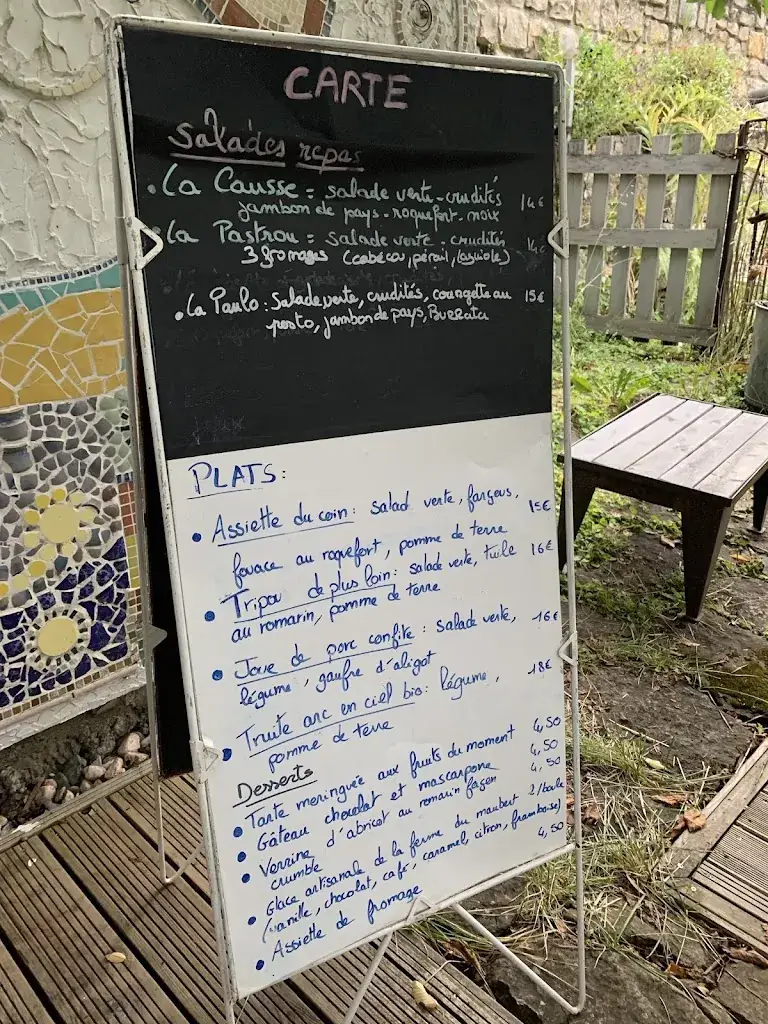 CARTE
Salades repas
. La Causse = salade verte - crudités 14€
jambon de pays - roquefort - noix
. La Pastrou = salade verte - crudités 14€
3 fromages (cabécou, pérail, laguiole)
. La Paulo : Salade verte, crudités, courgette au 15€
pesto, jambon de pays, Burrata
PLATS :
• Assiette du coin : salad verte, farçous, 15€
fouace au roquefort, pomme de terre
• Tripou de plus loin : salade verte, tuile 16€
au romarin, pomme de terre
• Joue de porc confite : salade verte, 16€
légume, gaufre d'aligot
• Truite arc en ciel bio : légume, 18€
pomme de terre
Desserts
• Tarte meringuée aux fruits du moment 4,50
• Gâteau chocolat et mascarpone 4,50
• Verrine d'abricot au romarin façon 4,50
crumble
• Glace artisanale de la ferme du maubert 2/boule
(vanille, chocolat, café, caramel, citron, framboise)
• Assiette de fromage 4,50